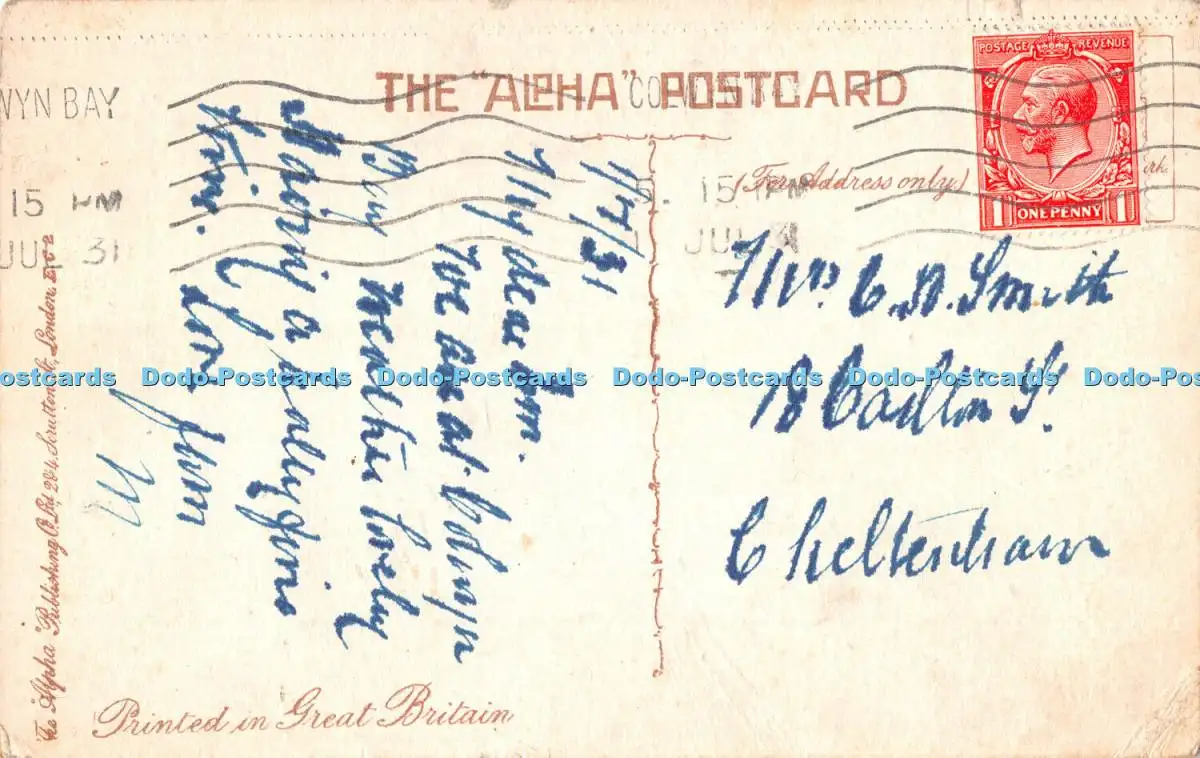 THE "ALPHA" POSTCARD
(For Address only)
POSTAGE REVENUE
1 ONE PENNY 1
WYN BAY
15 PM
JUL 31
15 PM
JUL
1/7/31
My dear
We are at Colwyn
Bay Weather lovely
Having a jolly fine
time. Love from
M
Mrs C. N. Smith
18 Carlton St.
Cheltenham
The Alpha Publishing Co. Ltd., 2 & 4, Scrutton St., London, E C 2
Printed in Great Britain
Dodo-Postcards Dodo-Postcards Dodo-Postcards Dodo-Postcards Dodo-Postcards Dodo-Postcards